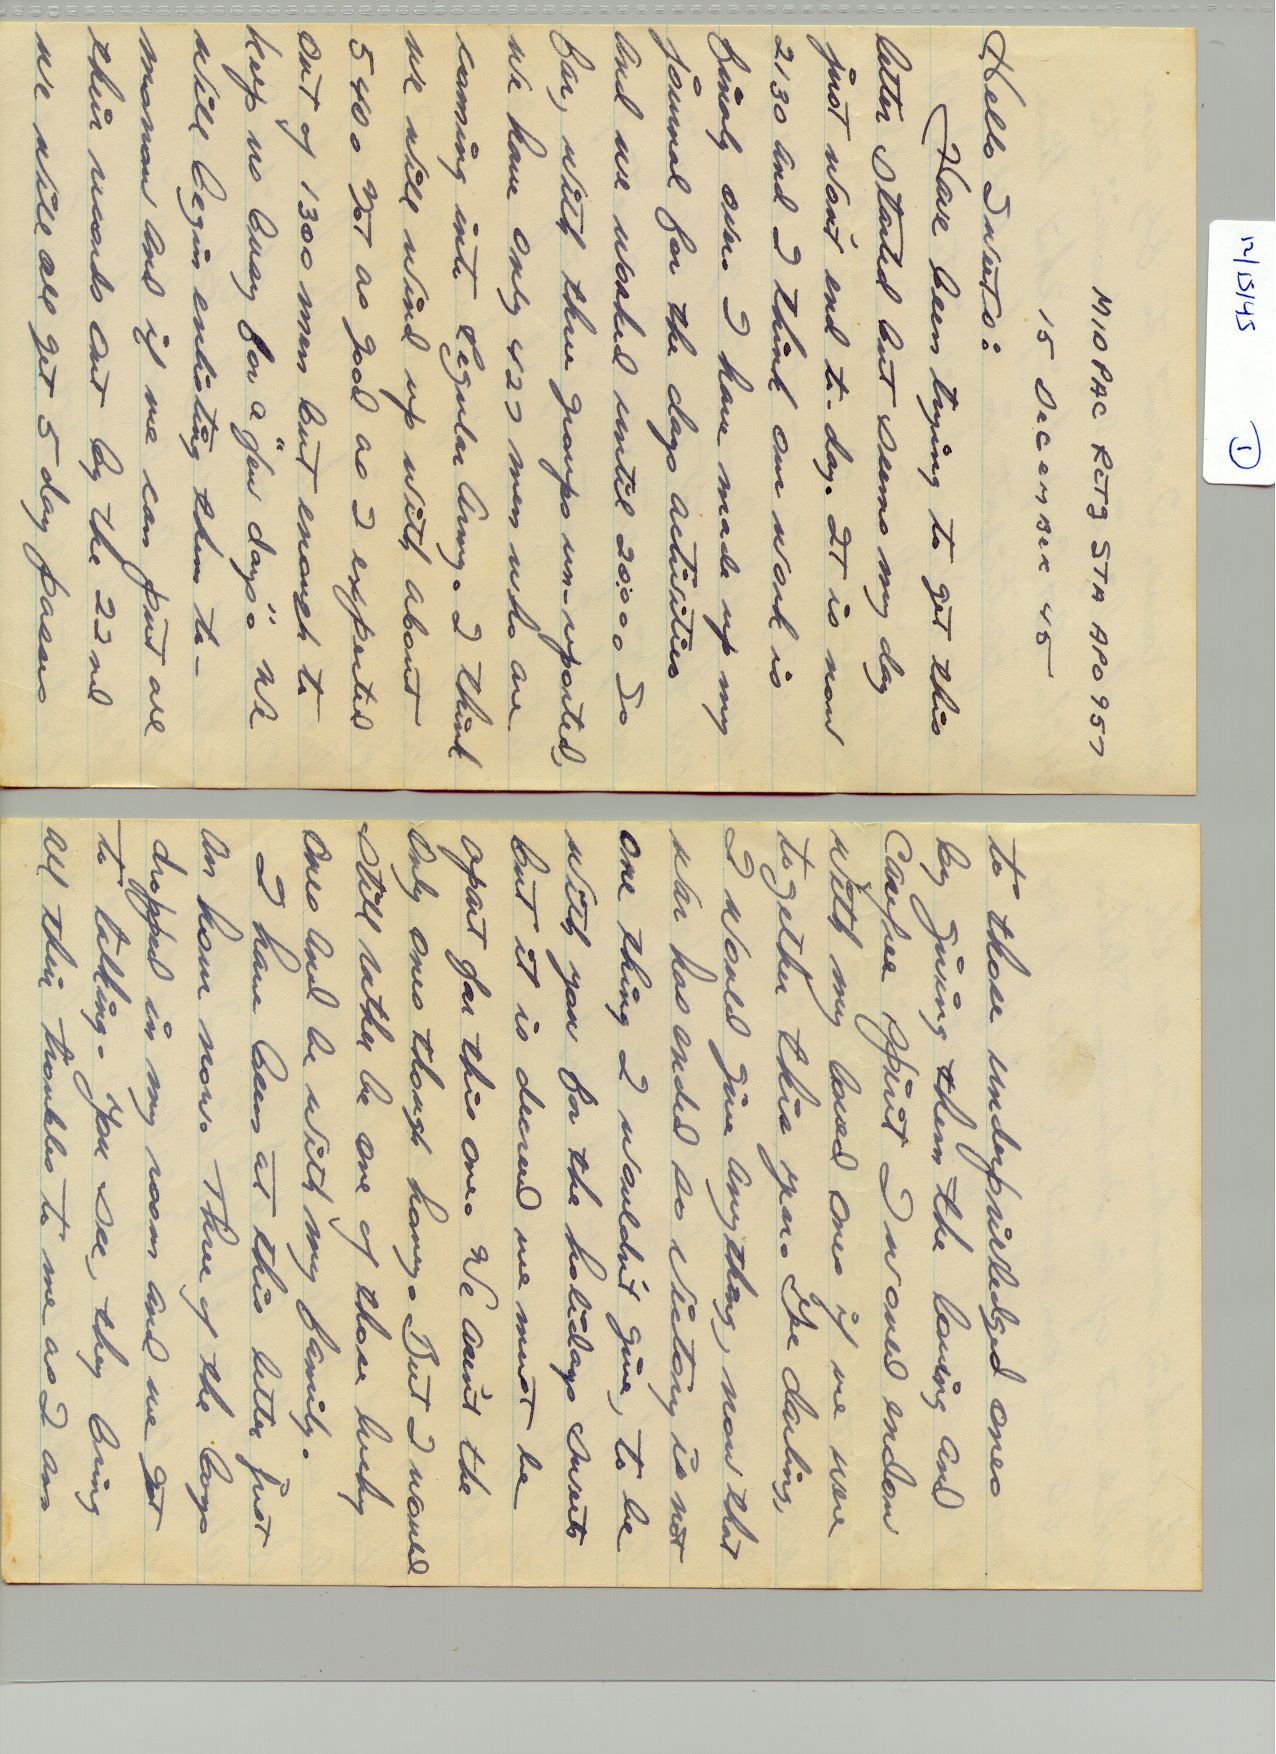 12/15/45 1
MIDPAC RCTG STA APO 957
15 DECEMBER 45
Hello Sweets:
Have been trying to get this
letter started but seems my day
just won't end to-day. It is now
2130 and I think our work is
finaly over. I have made up my
journal for the days activities
and we worked until 20:00. So
far, with three groups un-reported,
we have only 427 men who are
coming into Regular Army. I think
we will wind up with about
540. Not as good as I expected
out of 1300 men but enough to
keep us busy for a "few days". We
will begin enlisting them to-
morrow and if we can put all
their records out by the 22nd
we will all get 5 day passes
to those underprivledged ones
by giving them the loving and
carefree spirit I would endow
with my loved ones if we were
together this year. Yes darling,
I would give anything, now that
war has ended so victory is not
one thing I wouldn't give, to be
with you for the holidays Sweets
but it is decreed we must be
apart for this one. We ain't the
only ones though honey. But I would
still rather be one of those lucky
ones and be with my family.
I have been at this letter just
an hour now. Three of the boys
dropped in my room and we got
to talking. You see, they bring
all their troubles to me as I am